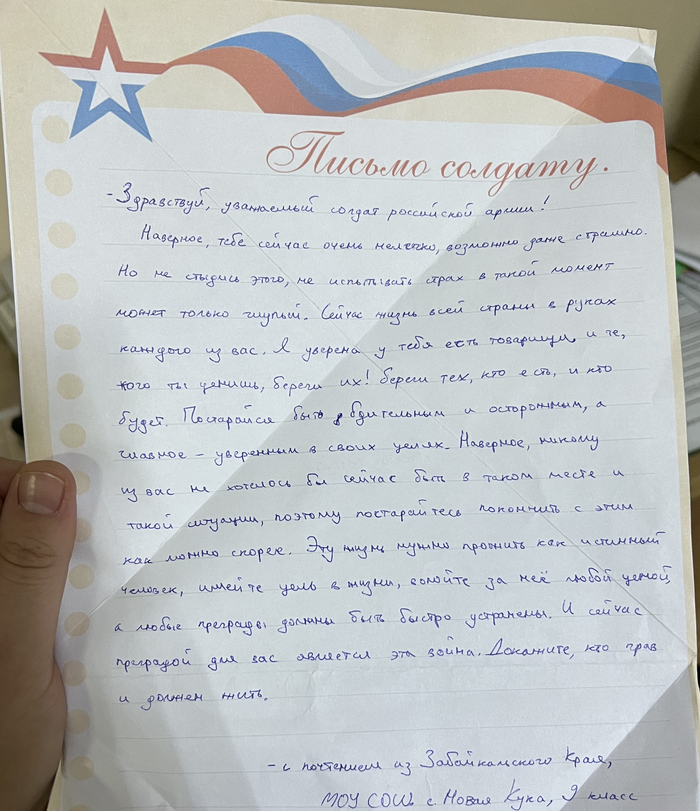 Письмо солдату.
- Здравствуй, уважаемый солдат российской армии!
Наверное, тебе сейчас очень нелегко, возможно даже страшно.
Но не стыдись этого, не испытывать страх в такой момент
может только глупый. Сейчас жизнь всей страны в руках
каждого из вас. Я уверена у тебя есть товарищи, и те,
кого ты ценишь, береги их! береги тех, кто есть, и кто
будет. Постарайся быть бдительным и осторожным, а
главное - уверенным в своих целях. Наверное, никому
из вас не хотелось бы сейчас быть в таком месте и
такой ситуации, поэтому постарайтесь покончить с этим
как можно скорее. Эту жизнь нужно прожить как истинный
человек, имейте цель в жизни, стойте за неё любой ценой,
а любые преграды должны быть быстро устранены. И сейчас
преградой для вас является эта война. Докажите, кто прав
и должен жить.
- с почтением из Забайкальского Края,
МОУ СОШ с Новая Кука, 9 класс